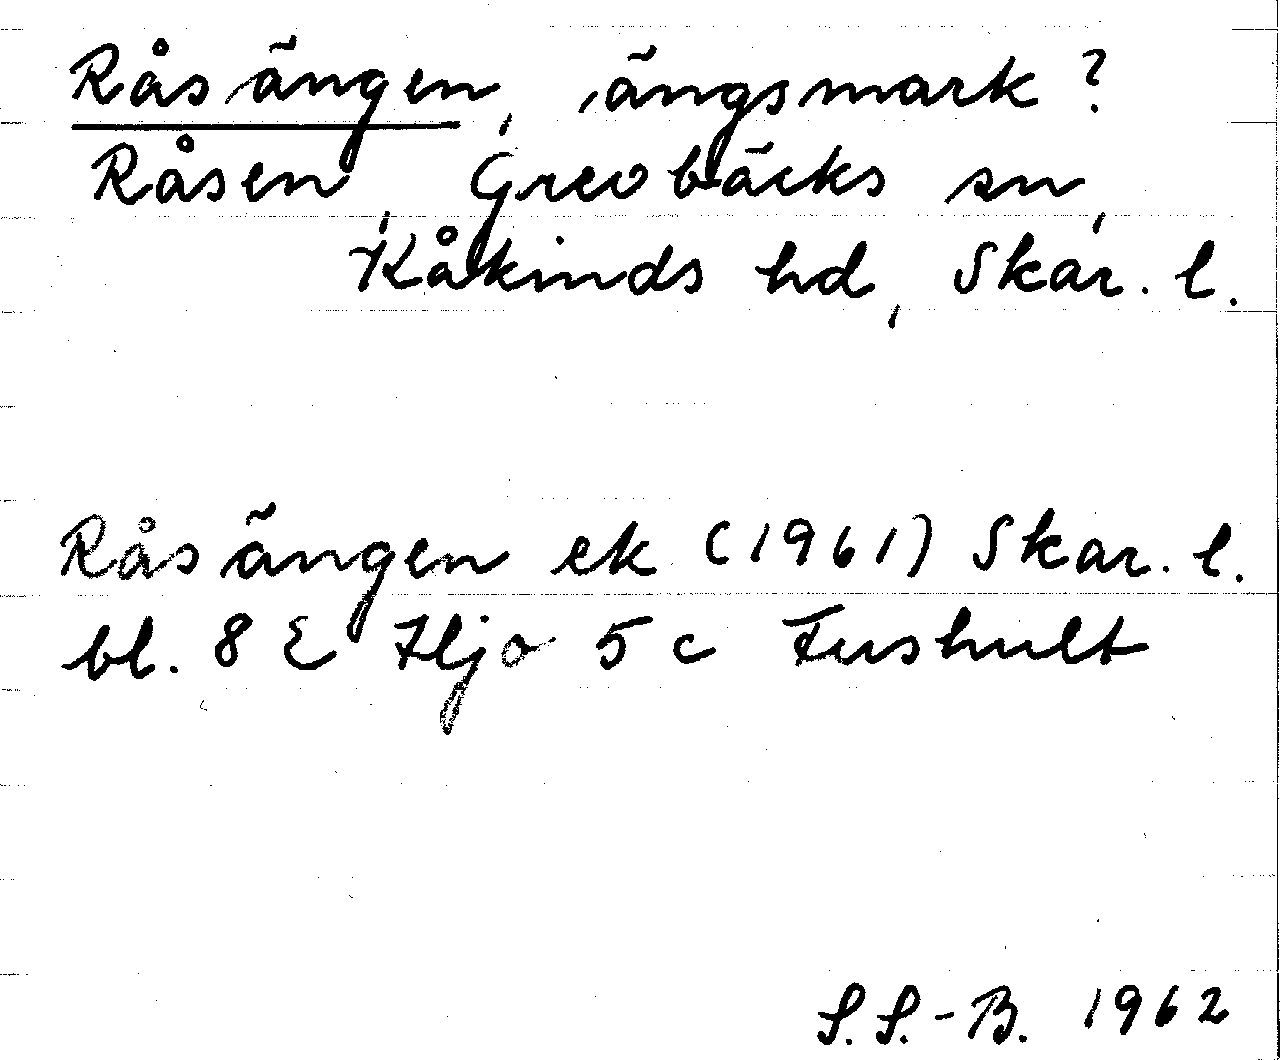 Råsängen, ängsmark?
Råsen, Grevbäcks sn,
Kåkinds hd, Skar. l.
Råsängen ek (1961) Skar. l.
bl. 8 E Hjo 5 c Fushult
S.S.-B. 1962